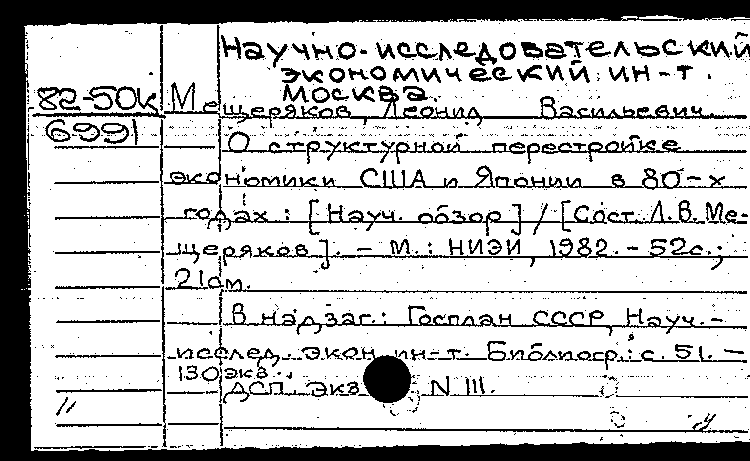 Научно-исследовательский
экономический ин-т.
Москва.
82-50к
6991
Мещеряков, Леонид Васильевич.
О структурной перестройке
экономики США и Японии в 80-х
годах : [Науч. обзор] / [Сост. Л. В. Ме-
щеряков]. - М. : НИЭИ, 1982. - 52с.;
21см.
В надзаг.: Госплан СССР, Науч.-
исслед. экон. ин-т. Библиогр.: с. 51. -
130 экз.
ДСП. Экз. N 111.